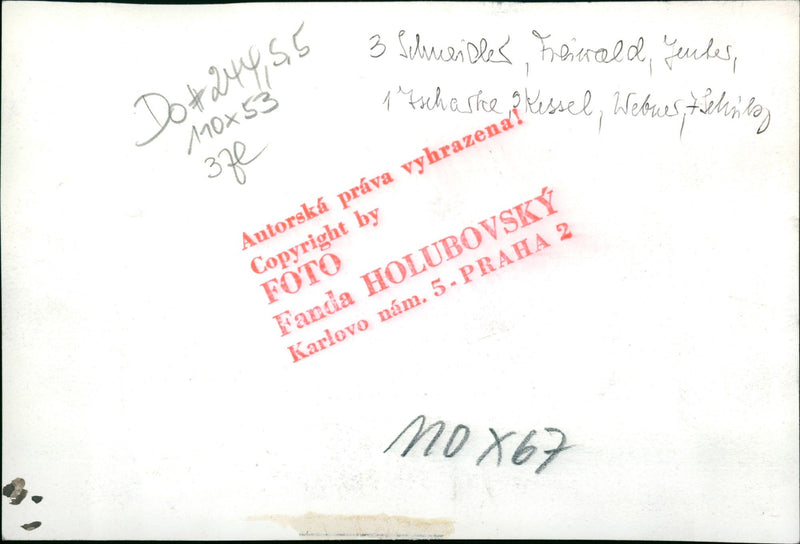 Do # 244, 5,5
110 x 53
3 Schneider, Freiwald, Jenter,
1 Zscharke, 2 Kessel, Webner, 7
Autorská práva vyhrazena!
Copyright by
FOTO
Fanda HOLUBOVSKÝ
Karlovo nám. 5 - PRAHA 2
110 X 67